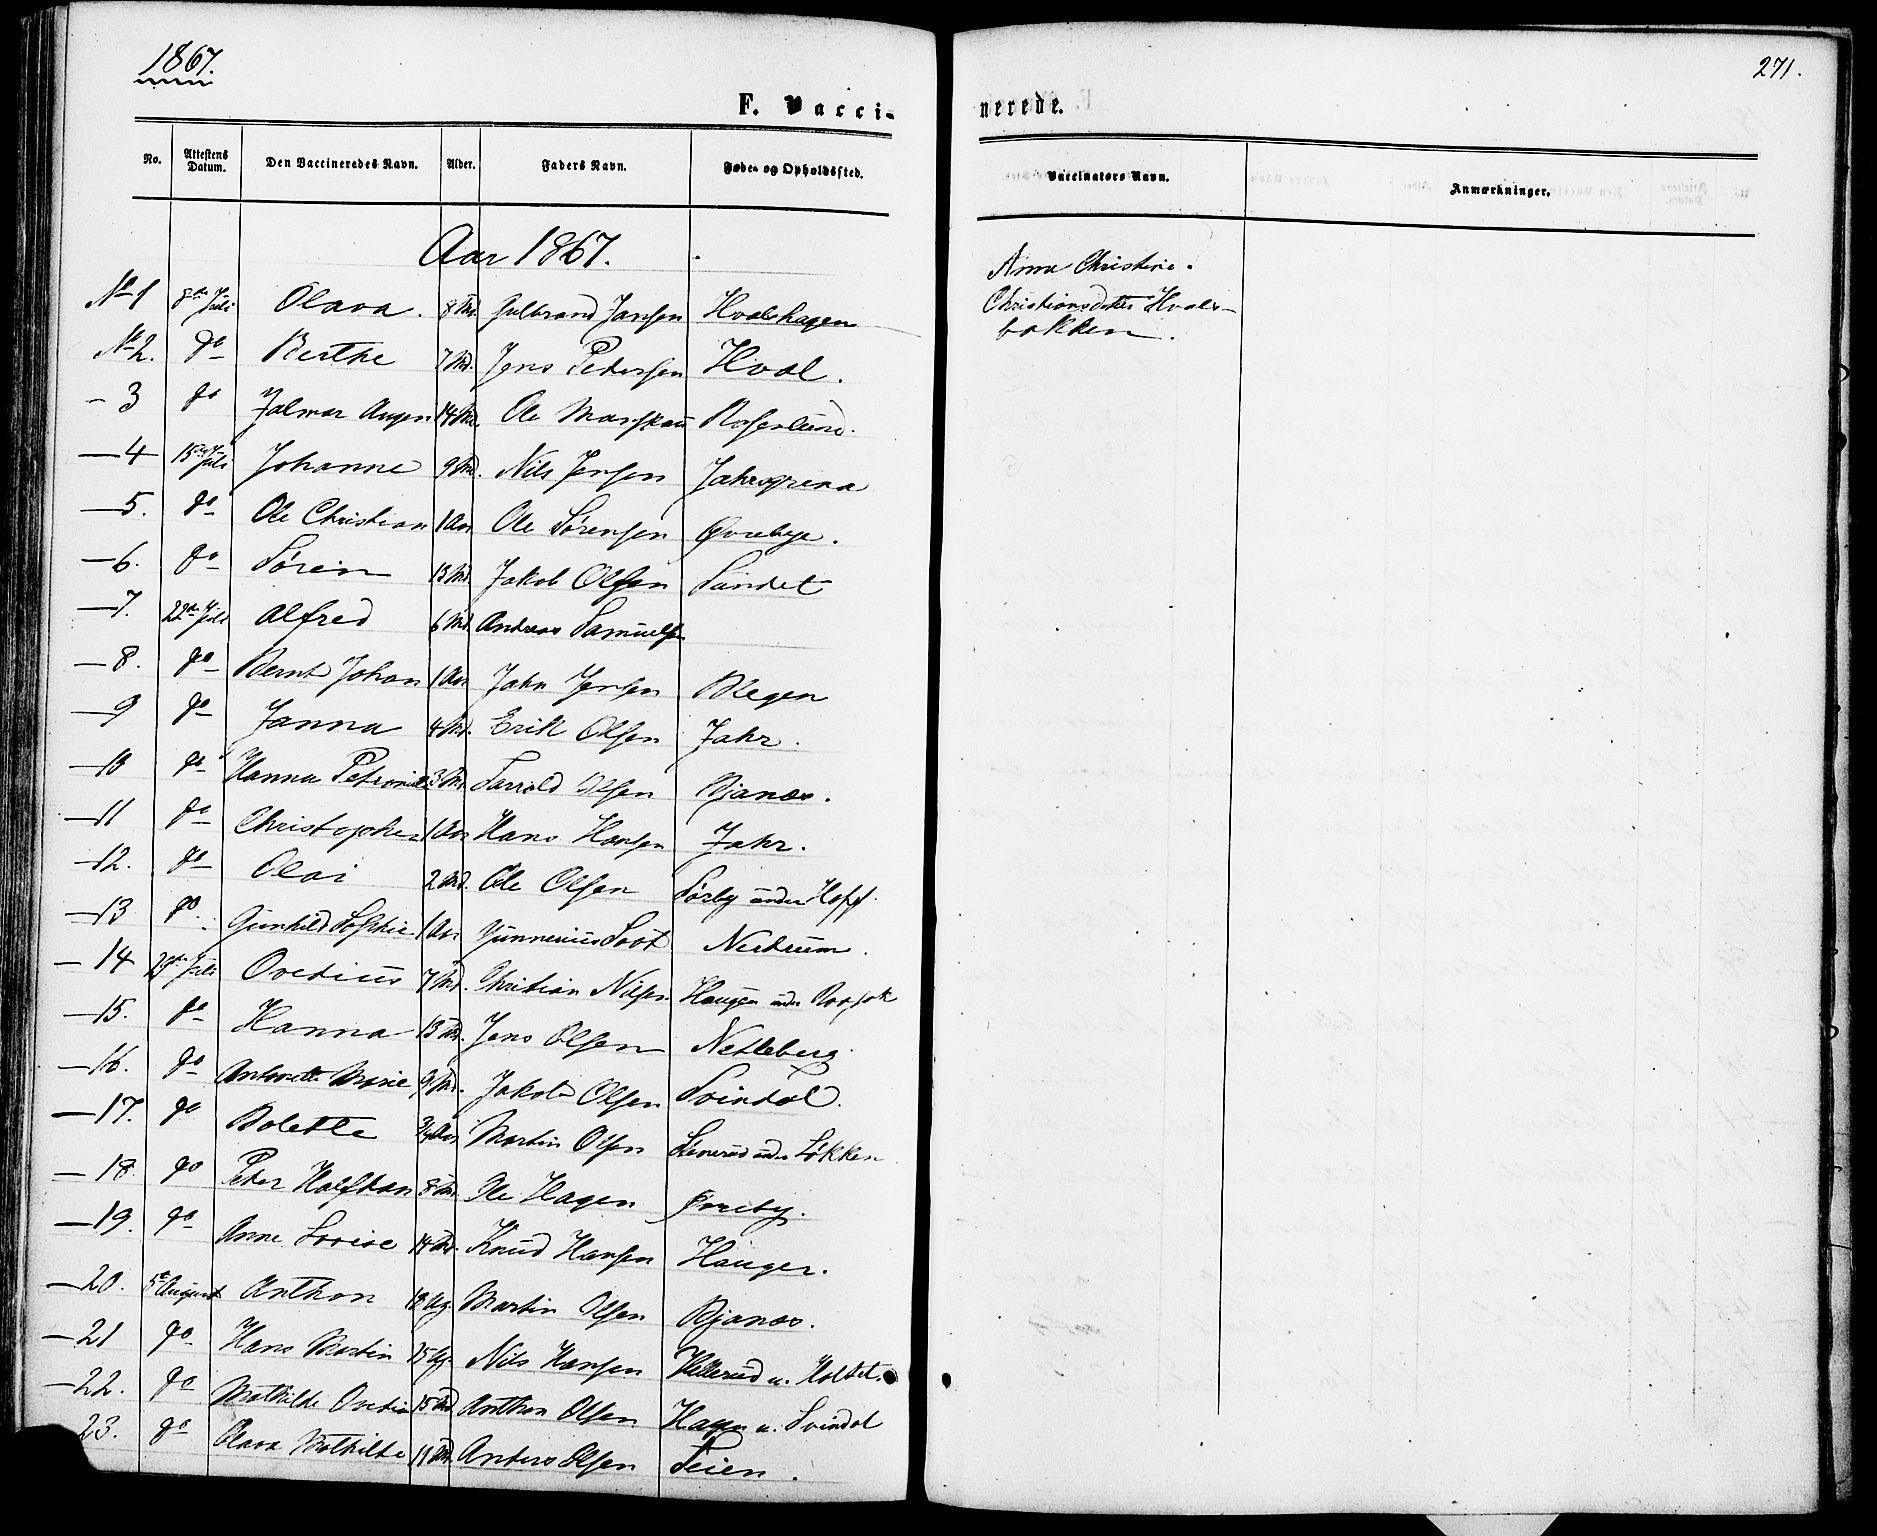 1867.
271.
F. Vacci-
nerede.
No. Attestens Datum. Den Vaccineredes Navn. Alder. Faders Navn. Føde- og Opholdssted. Vaccinators Navn. Anmærkninger.
Aar 1867.
Anna Christine
Christiansdatter Hvals-
bakken.
No 1 8de Juli Olava. 8 Md. Gulbrand Jansen Hvalshagen
No 2. do Berthe 7 Md. Jens Pedersen Hval.
- 3 do Jalmar August 14 Md. Ole
— 4 15de Juli Johanne 9 Md. Nils Jensen
— 5. do Ole Christian 1 Aar Ole Sørensen Øvrebye.
— 6. do Søren 13 Md. Jakob Olsen Sandet
— 7. 22de Juli Alfred 6 Md. Andreas Samuelsen
— 8. do Bernt Johan 1 Aar John Jensen Blegen
— 9 do Janna 4 Md. Erik Olsen Jahr.
— 10 do Hanna 3 Md. Olsen Bjanæs.
— 11 do Christopher 1 Aar Hans Hansen Jahr.
— 12. do Olai 2 Md. Ole Olsen Sørby under Hoff.
— 13 do. Gunhild Sophie 1 Aar Nerdrum.
— 14 29de Juli Ovedius 7 Md. Christian Nilsen Haugen under
— 15. do Hanna 13 Md. Jens Olsen Netleberg.
— 16. do Antonette Marie 9 Md. Jakob Olsen Svindal.
— 17. do Bolette Aar Martin Olsen under Løkken
— 18. do Peter Halfdan 8 Md. Ole Hagen Øvreby.
— 19. do Anne Lovise 14 Md. Knud Hansen Hauger.
— 20. 5te August Anthon 18 Ug. Martin Olsen Bjanæs.
— 21 do Hans Martin 15 Ug. Nils Hansen Hellerud u. Holtet.
— 22. do Mathilde Ovedia 15 Md Anthon Olsen Hagen u. Svindal
23. do Olava Mathilde 11 Md. Anders Olsen Seien.